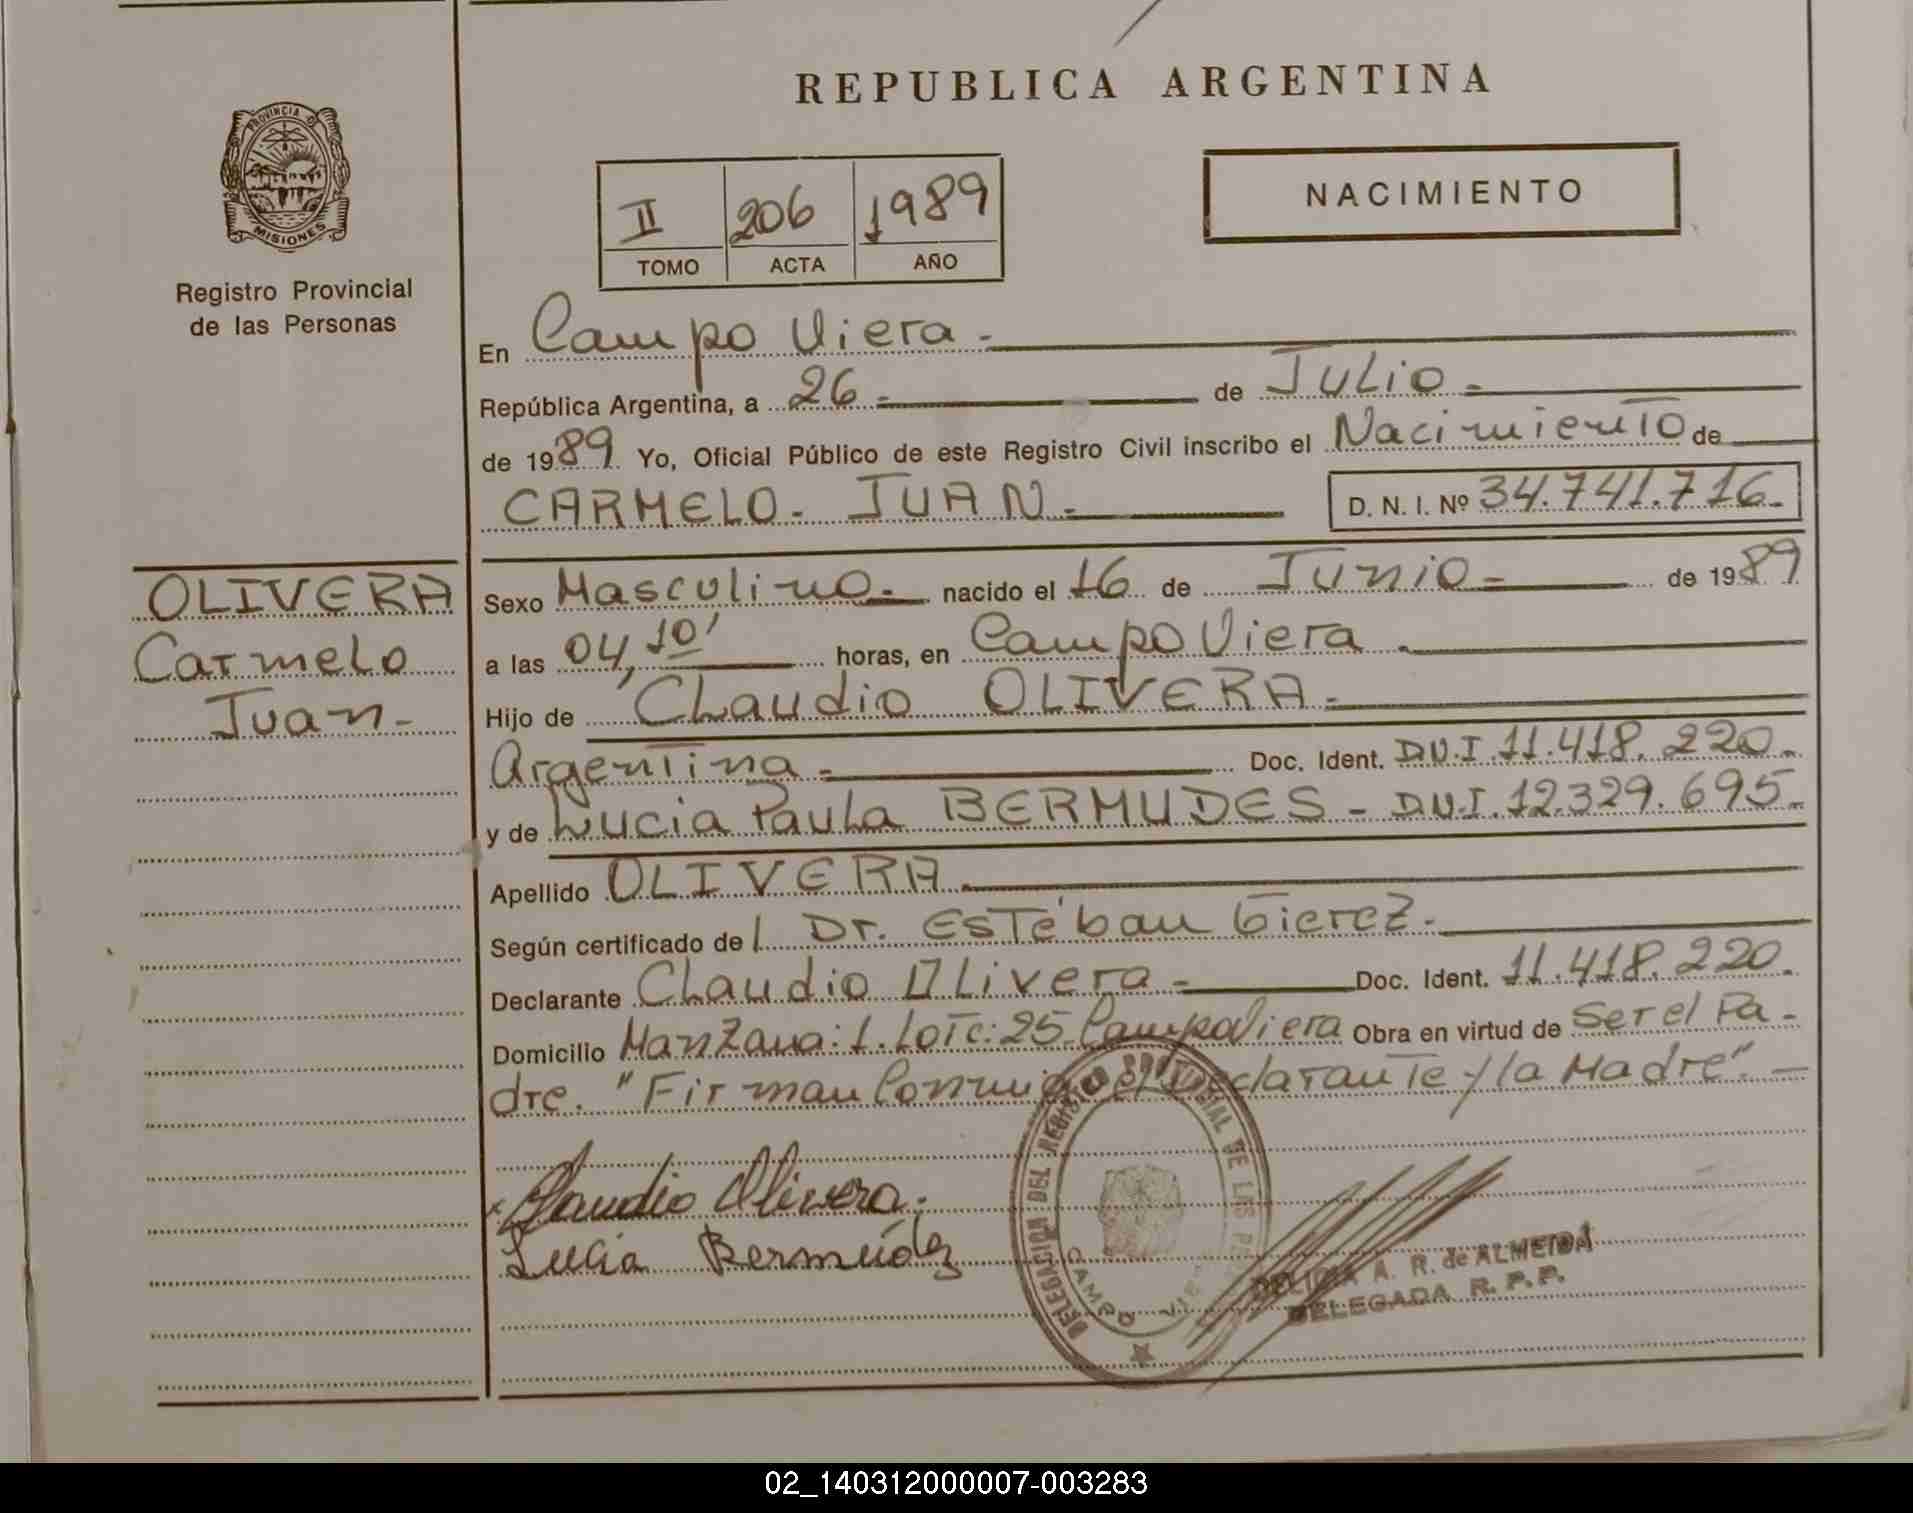 REPUBLICA ARGENTINA
PROVINCIA D
MISIONES
Registro Provincial
de las Personas
II 206 1989
TOMO ACTA AÑO
NACIMIENTO
En Campo Viera -
República Argentina, a 26 - de Julio -
de 1989 Yo, Oficial Público de este Registro Civil inscribo el Nacimiento de
CARMELO - JUAN - D. N. I. Nº 34.741.716-
OLIVERA
Carmelo
Juan -
Sexo Masculino - nacido el 16 de Junio - de 1989
a las 04,10' horas, en Campo Viera -
Hijo de Claudio OLIVERA -
Argentina - Doc. Ident. D.N.I. 11.418.220-
y de Lucia Paula BERMUDES - D.N.I. 12.329.695-
Apellido OLIVERA -
Según certificado del Dr. Estéban Gierez -
Declarante Claudio Olivera - Doc. Ident. 11.418.220-
Domicilio Manzana: 1. Lote: 25 - Campo Viera Obra en virtud de Ser el Pa-
dre. "Firman Conmigo el Declarante y la Madre". -
Claudio Olivera.
Lucia Bermúdez
DELEGACION DEL REGISTRO PROVINCIAL DE LAS
CAMPO VIERA
DELICIA A. R. de ALMEIDA
DELEGADA R. P. P.
02_140312000007-003283